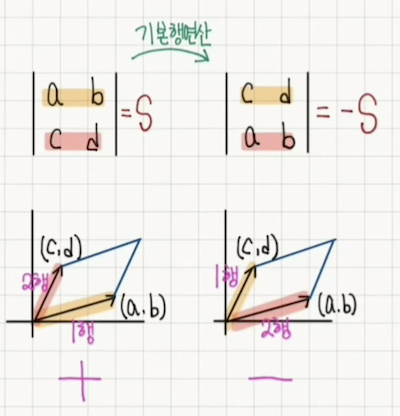 기본행연산
|a b| = S
|c d|
|c d| = -S
|a b|
(c,d)
2행
(a.b)
1행
+
(c,d)
1행
(a.b)
2행
-